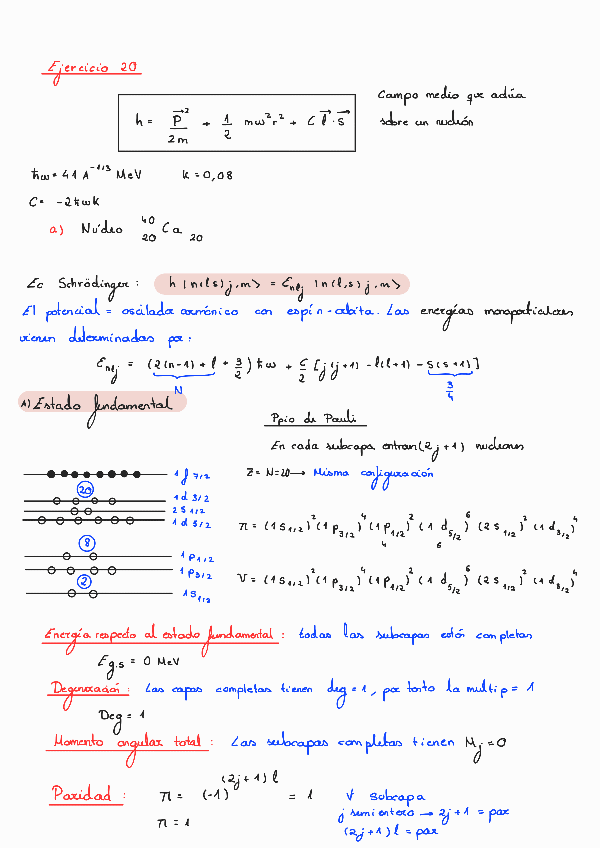 Ejercicio 20
h = P⃗²/2m + 1/2 mω²r² + C l⃗·s⃗
Campo medio que actúa
sobre un nucleón
ħω = 41 A^-1/3 MeV K = 0,08
C = -2ħωK
a) Núcleo ⁴⁰₂₀Ca₂₀
Ec Schrödinger: h |n(ls)j,m> = Ɛnlj |n(l,s)j,m>
El potencial = oscilador armónico con espín-órbita. Las energías monoparticulares
vienen determinadas por:
Ɛnlj = (2(n-1) + l + 3/2) ħω + C/2 [j(j+1) - l(l+1) - s(s+1)]
N
3/4
A) Estado fundamental
Ppio de Pauli
En cada subcapa entran (2j+1) nucleones
Z = N = 20 → Misma configuración
1f 7/2
20
1d 3/2
2s 1/2
1d 5/2
8
1p 1/2
1p 3/2
2
1s 1/2
π = (1s1/2)² (1p3/2)⁴ (1p1/2)² (1d5/2)⁶ (2s1/2)² (1d3/2)⁴
4 6
ν = (1s1/2)² (1p3/2)⁴ (1p1/2)² (1d5/2)⁶ (2s1/2)² (1d3/2)⁴
Energía respecto al estado fundamental: todas las subcapas están completas
Eg.s = 0 MeV
Degeneración: Las capas completas tienen deg = 1, por tanto la multip = 1
Deg = 1
Momento angular total: Las subcapas completas tienen Mj = 0
Paridad: π = (-1)^(2j+1)l = 1 ∀ subcapa
j semientero → 2j+1 = par
π = 1
(2j+1)l = par